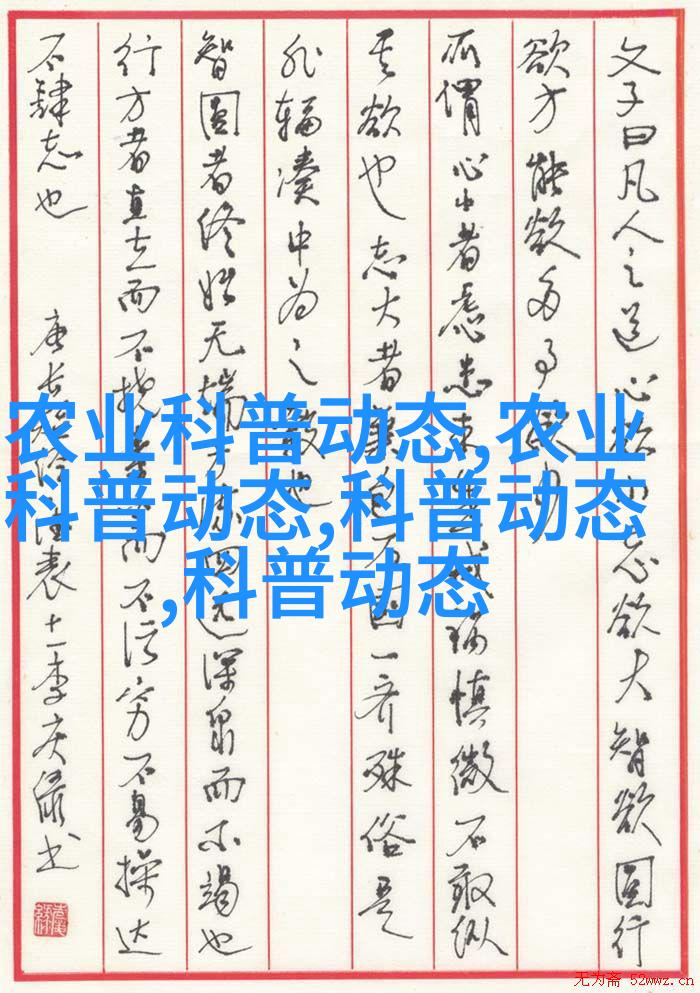 文子曰凡人之道心欲小志欲大智欲圆行
欲方能欲多事
所谓心小者虑患未生戒祸慎微不敢纵
其欲也志大者兼包万国一齐殊俗是
非辐凑中为之毂也
智圆者终始无端方流四远深泉而不竭也
行方者直立而不挠素白而不污穷不易操达
不肆志也
表十一李庆绿书
农业科普动态,农业
科普动态,科普动态
,科普动态
无为斋 52wwz.cn